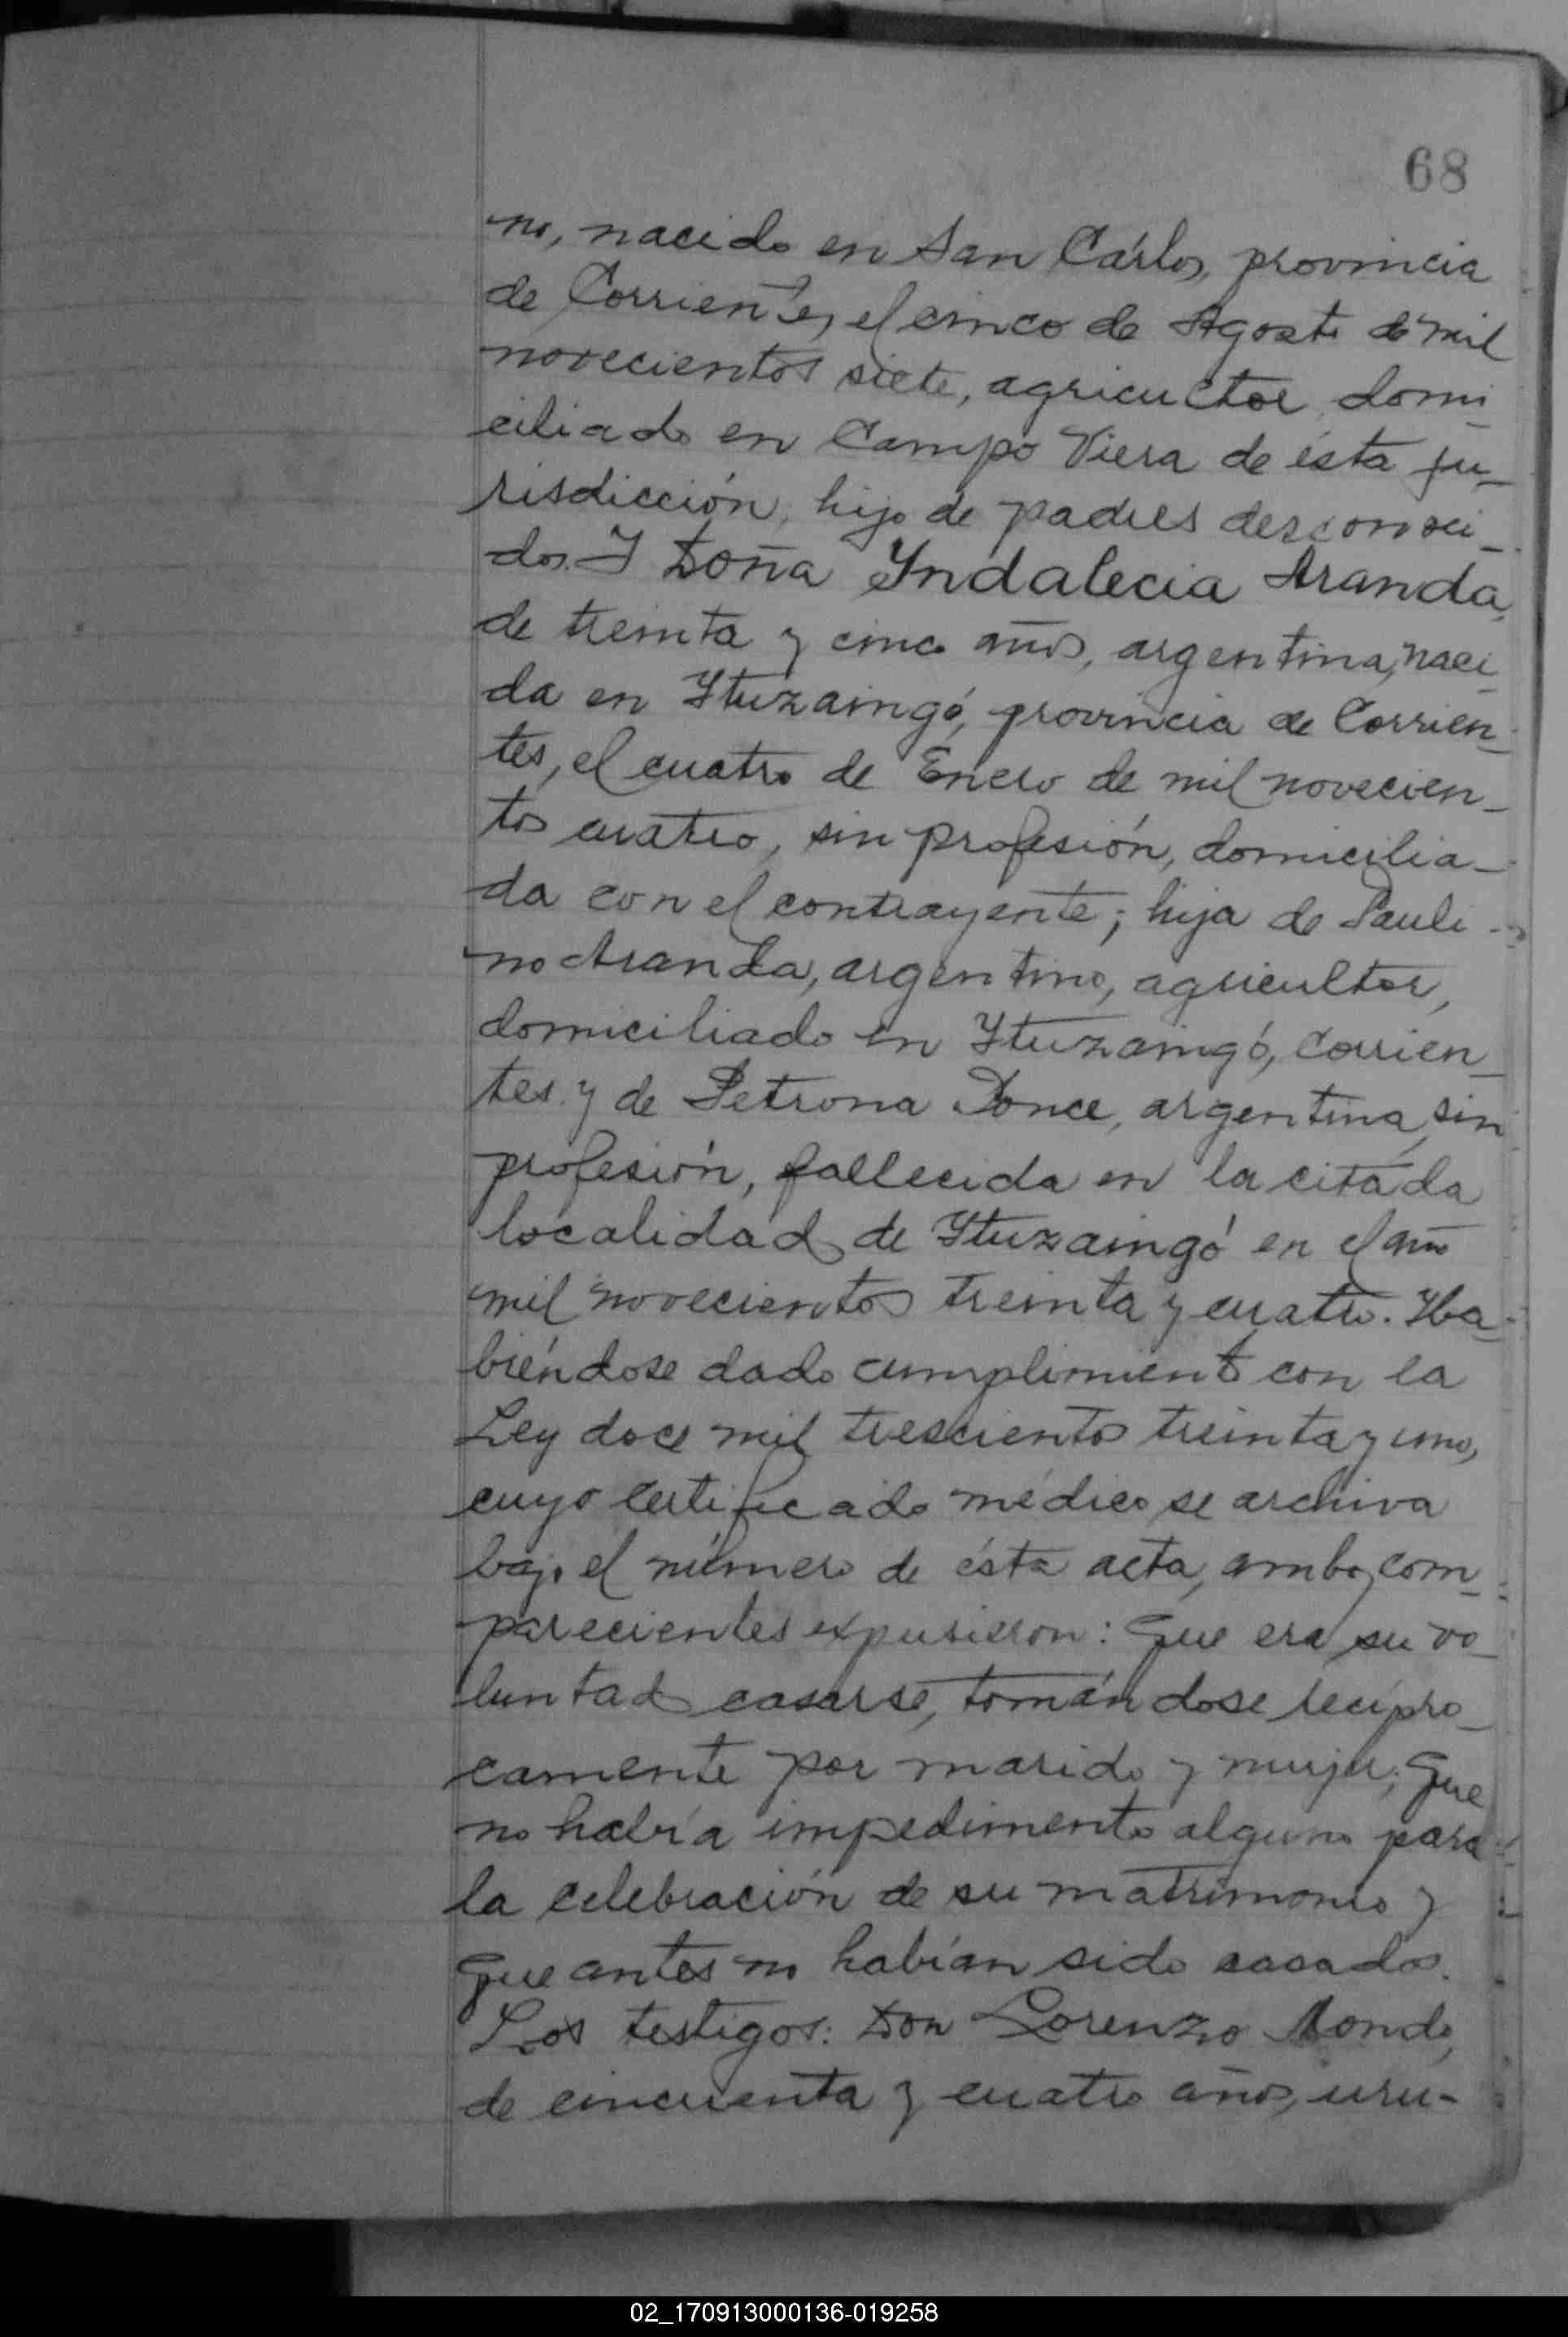 68
no, nacido en San Cárlos, provincia
de Corrientes, el cinco de Agosto de mil
novecientos siete, agricultor, domi
ciliado en Campo Viera de ésta ju_
risdicción, hijo de padres desconoci_
dos. Y Doña Yndalecia Aranda,
de treinta y cinco años, argentina, naci_
da en Ytuzaingó, provincia de Corrien_
tes, el cuatro de Enero de mil novecien_
tos cuatro, sin profesión, domicilia_
da con el contrayente; hija de Pauli_
no Aranda, argentino, agricultor,
domiciliado en Ytuzaingó, Corrien_
tes y de Petrona Ponce, argentina, sin
profesión, fallecida en la citada
localidad de Ytuzaingó en el año
mil novecientos treinta y cuatro. Ha_
biéndose dado cumplimiento con la
Ley doce mil trescientos treinta y uno,
cuyo certificado médico se archiva
bajo el número de ésta acta, ambos com_
parecientes expusieron: Que era su vo_
luntad casarse, tomándose recípro_
camente por marido y mujer; Que
no había impedimento alguno para
la celebración de su matrimonio y
Que antes no habían sido casados.
Los testigos: Don Lorenzo Mondo,
de cincuenta y cuatro años, uru-
02_170913000136-019258